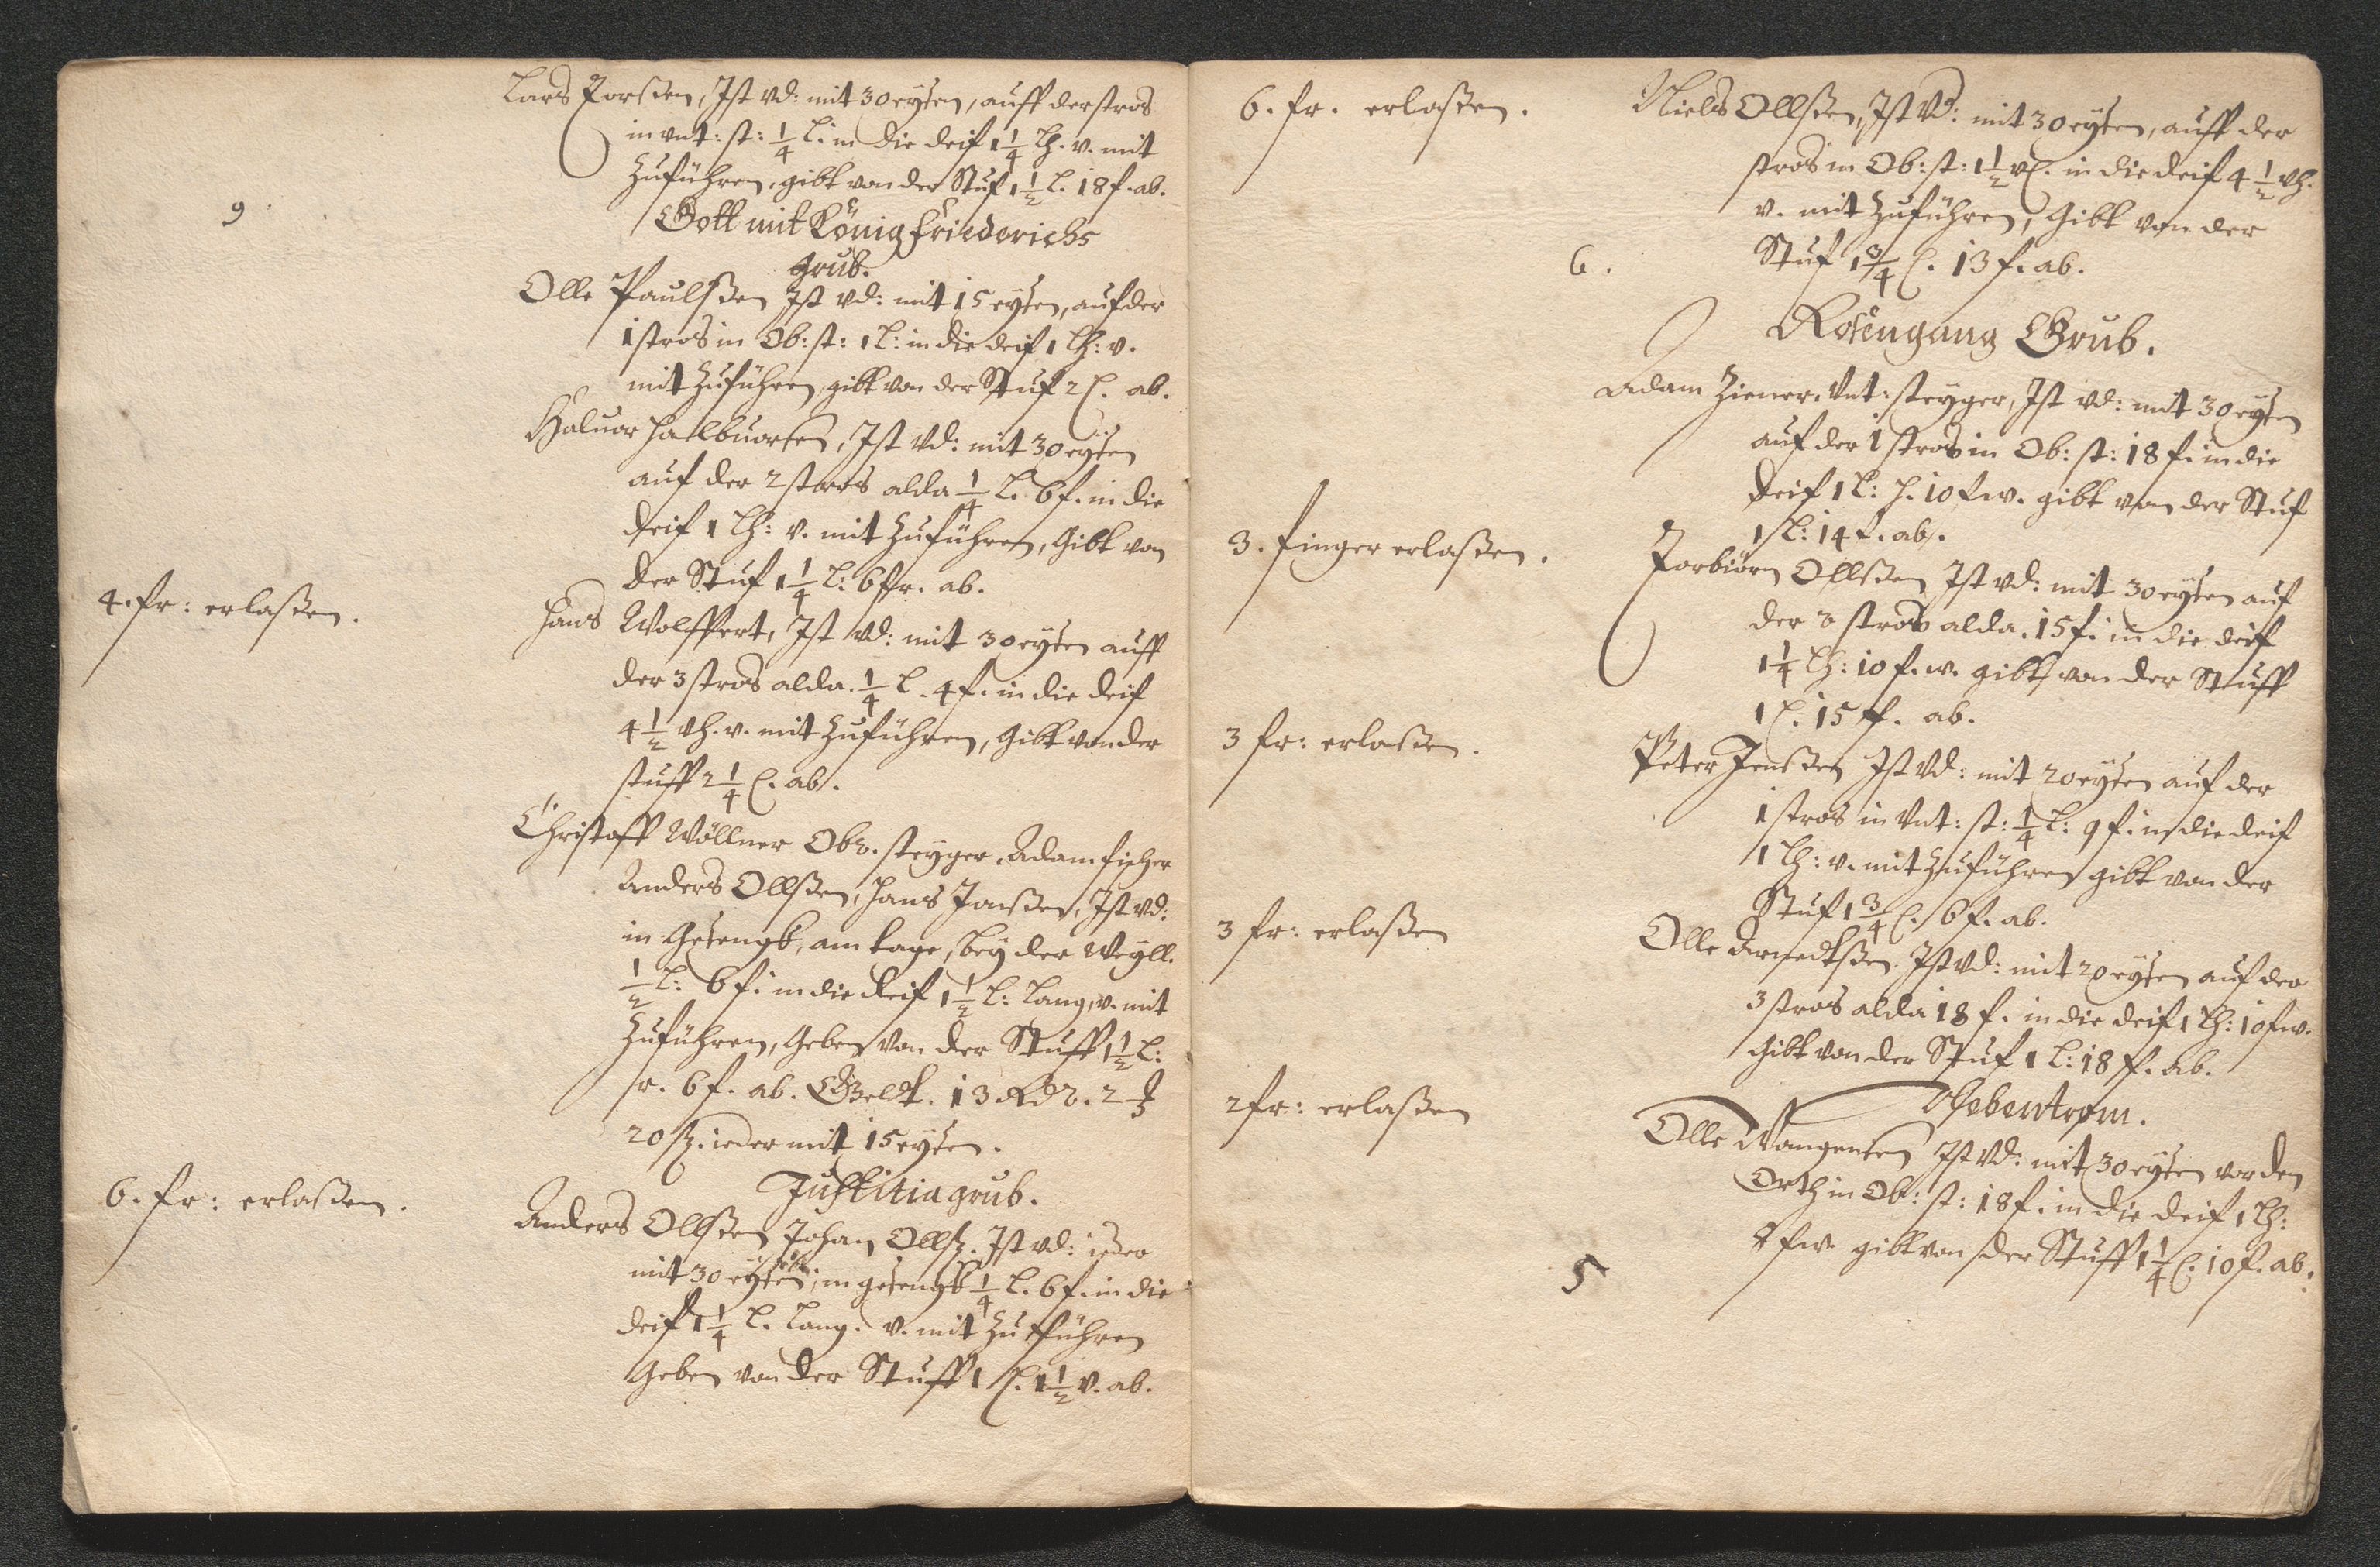 Lars Torßen, Ist vd: mit 30 eysen, auff der stros
in vnt: st: 1/4 l. in die deif 1 1/4 lh. v. mit
Zuführen, gibt von der Stuf 1 1/2 l. 18 f. ab.
9
Gott mit König Friederichs
grub.
Olle Paulsßen Ist vd: mit 15 eysen, auf der
1 stros in Ob: st: 1 l: in die deif 1 lh: v.
mit Zuführen, gibt von der Stuf 2 l. ab.
Haluor Hallbuorsen, Ist vd: mit 30 eysen
auf der 2 stros alda 1/4 l. 6 f. in die
deif 1 lh: v. mit Zuführen, Gibt von
der Stuf 1 1/4 l: 6 fr. ab.
4. fr: erlaßen.
Hans Wolffert, Ist vd: mit 30 eysen auff
der 3 stros alda. 1/4 l. 4 f. in die deif
4 1/2 vh. v. mit Zuführen, Gibt von der
stuff 2 1/4 l. ab.
Christoff Wöllner Obr. steyger. Adam fischer
Anders Ollßen, Hans Jonßen, Ist vd:
in Gesengk, am tage, bey der Weyll.
1/2 l: 6 f. in die deif 1 1/2 l: Lang, v. mit
Zuführen, Geben von der Stuff 1 1/2 l:
r. 6 f. ab. Geldt. 13 Rdr. 2
20 ß. ieder mit 15 eysen.
Justitia grub.
6. fr: erlaßen.
Anders Ollßen Johan Ollß. Ist vd: ieder
mit 30 eysen, in gesengk 1/4 l. 6 f. in die
deif 1 1/4 l. Lang. v. mit Zu führen
Geben von der Stuff 1 l. 1 1/2 v. ab.
6. fr. erlaßen.
Niels Ollßen, Ist vd: mit 30 eysen, auff der
stros in Ob: st: 1 1/2 vl. in die deif 4 1/2 vh.
v. mit Zuführen, Gibt von der
Stuf 1 3/4 l. 13 f. ab.
6.
Rosengang Grub.
Adam Ziener. Vnt: steyger, Ist vd: mit 30 eysen
auf der 1 stros in Ob: st: 18 f. in die
deif 1 l: h. 10 f w. gibt von der Stuf
1 l: 14 f. ab.
3. finger erlaßen.
Torbiörn Ollßen Ist vd: mit 30 eysen auf
der 2 stros alda. 15 f. in die deif
1 1/4 lh: 10 f. w. gibt von der Stuff
1 l. 15 f. ab.
3 fr: erlaßen.
Peter Jenßen Ist vd: mit 20 eysen auf der
1 stros in Vnt: st: 1/4 l: 9 f. in die deif
1 lh: v. mit Zuführen gibt von der
Stuf 1 3/4 l. 6 f. ab.
3 fr: erlaßen
Olle Ist vd: mit 20 eysen auf der
3 stros alda 18 f. in die deif 1 lh: 10 f w.
Gibt von der Stuf 1 l: 18 f. ab.
Nebentrom.
2 fr: erlaßen
Olle Wangensen Ist vd: mit 30 eysen vor den
Orth in Ob: st: 18 f. in die deif 1 lh:
8 f w. gibt von der Stuff 1 1/4 l. 10 f. ab.
5